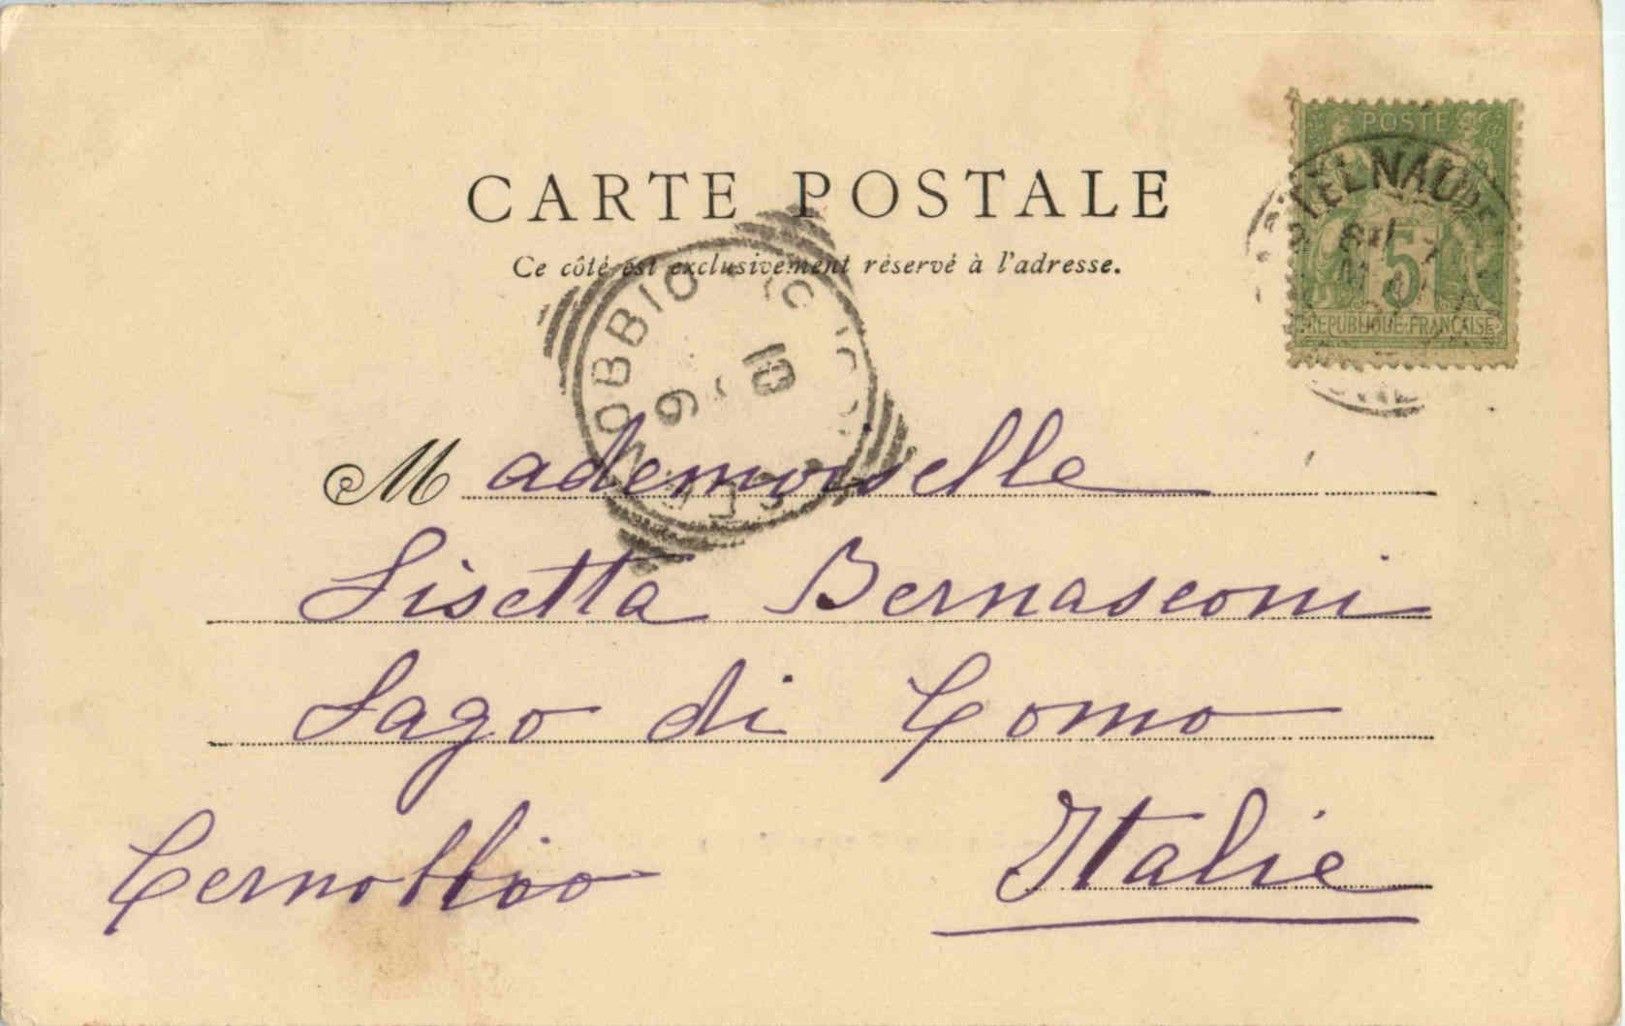 CARTE POSTALE
Ce côté est exclusivement réservé à l'adresse.
POSTE
5
REPUBLIQUE FRANÇAISE
TELNAUD
OBBIO
10
6
Mademoiselle
Lisetta Bernasconi
Lago di Como
Cernobbio Italie